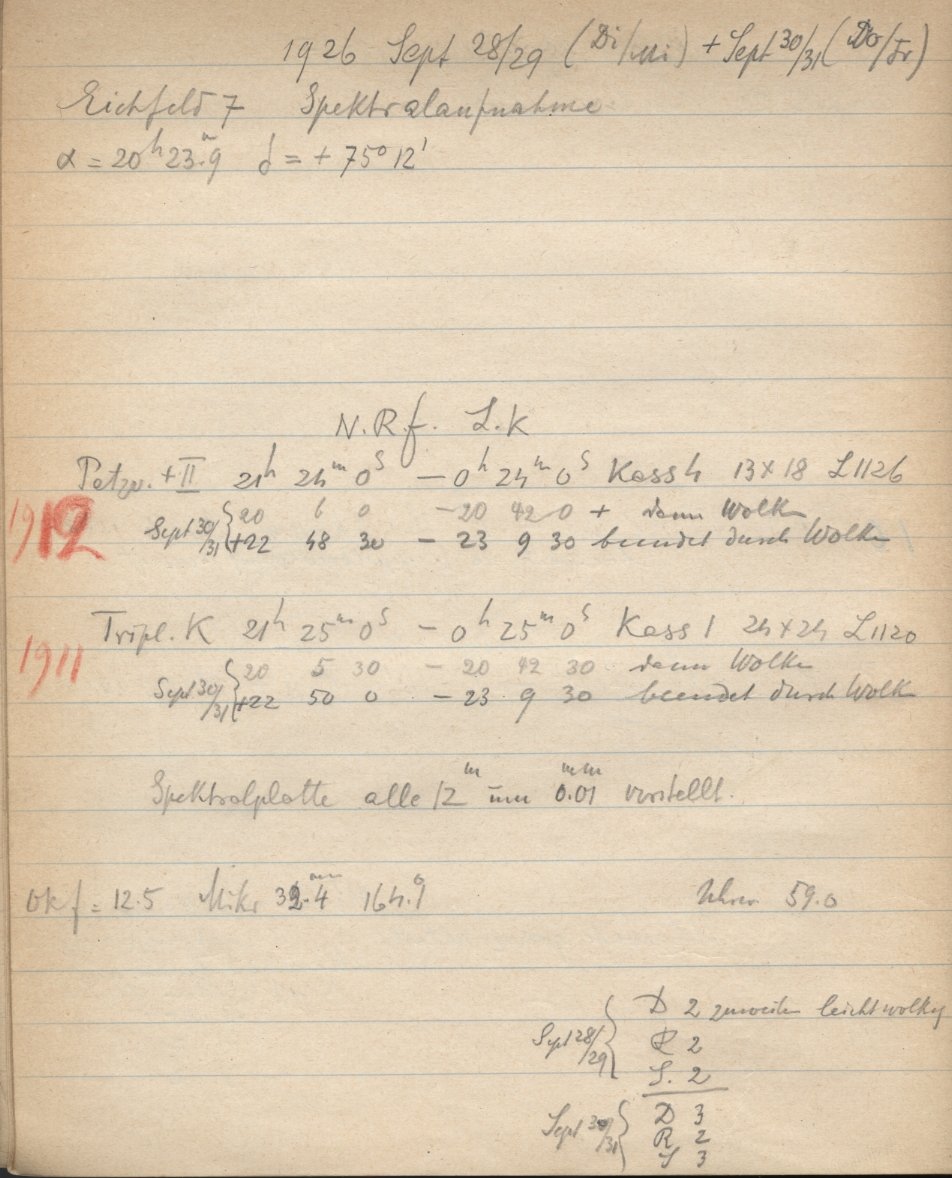 1926 Sept 28/29 (Di/Mi) + Sept 30/31 (Do/Fr)
Eichfeld 7 Spektralaufnahme
α = 20h 23.m9 δ = + 75° 12'
N.R.f. L.K
Petzv. + II 21h 24m 0s – 0h 24m 0s Kass 4 13×18 L1126
1912
Sept 30/31 { 20 6 0 – 20 42 0 + dann Wolken
+22 48 30 – 23 9 30 beendet durch Wolken
Tripl. K 21h 25m 0s – 0h 25m 0s Kass 1 24×24 L1120
1911
Sept 30/31 { 20 5 30 – 20 42 30 dann Wolken
+22 50 0 – 23 9 30 beendet durch Wolken
Spektralplatte alle 12m um 0.01mm verstellt.
Okf = 12.5 Mikr 32.4mm 164.°1 59.0
Sept 28/29 { D 2 zuweilen leicht wolkig
R 2
S. 2
Sept 30/31 { D 3
R 2
S 3